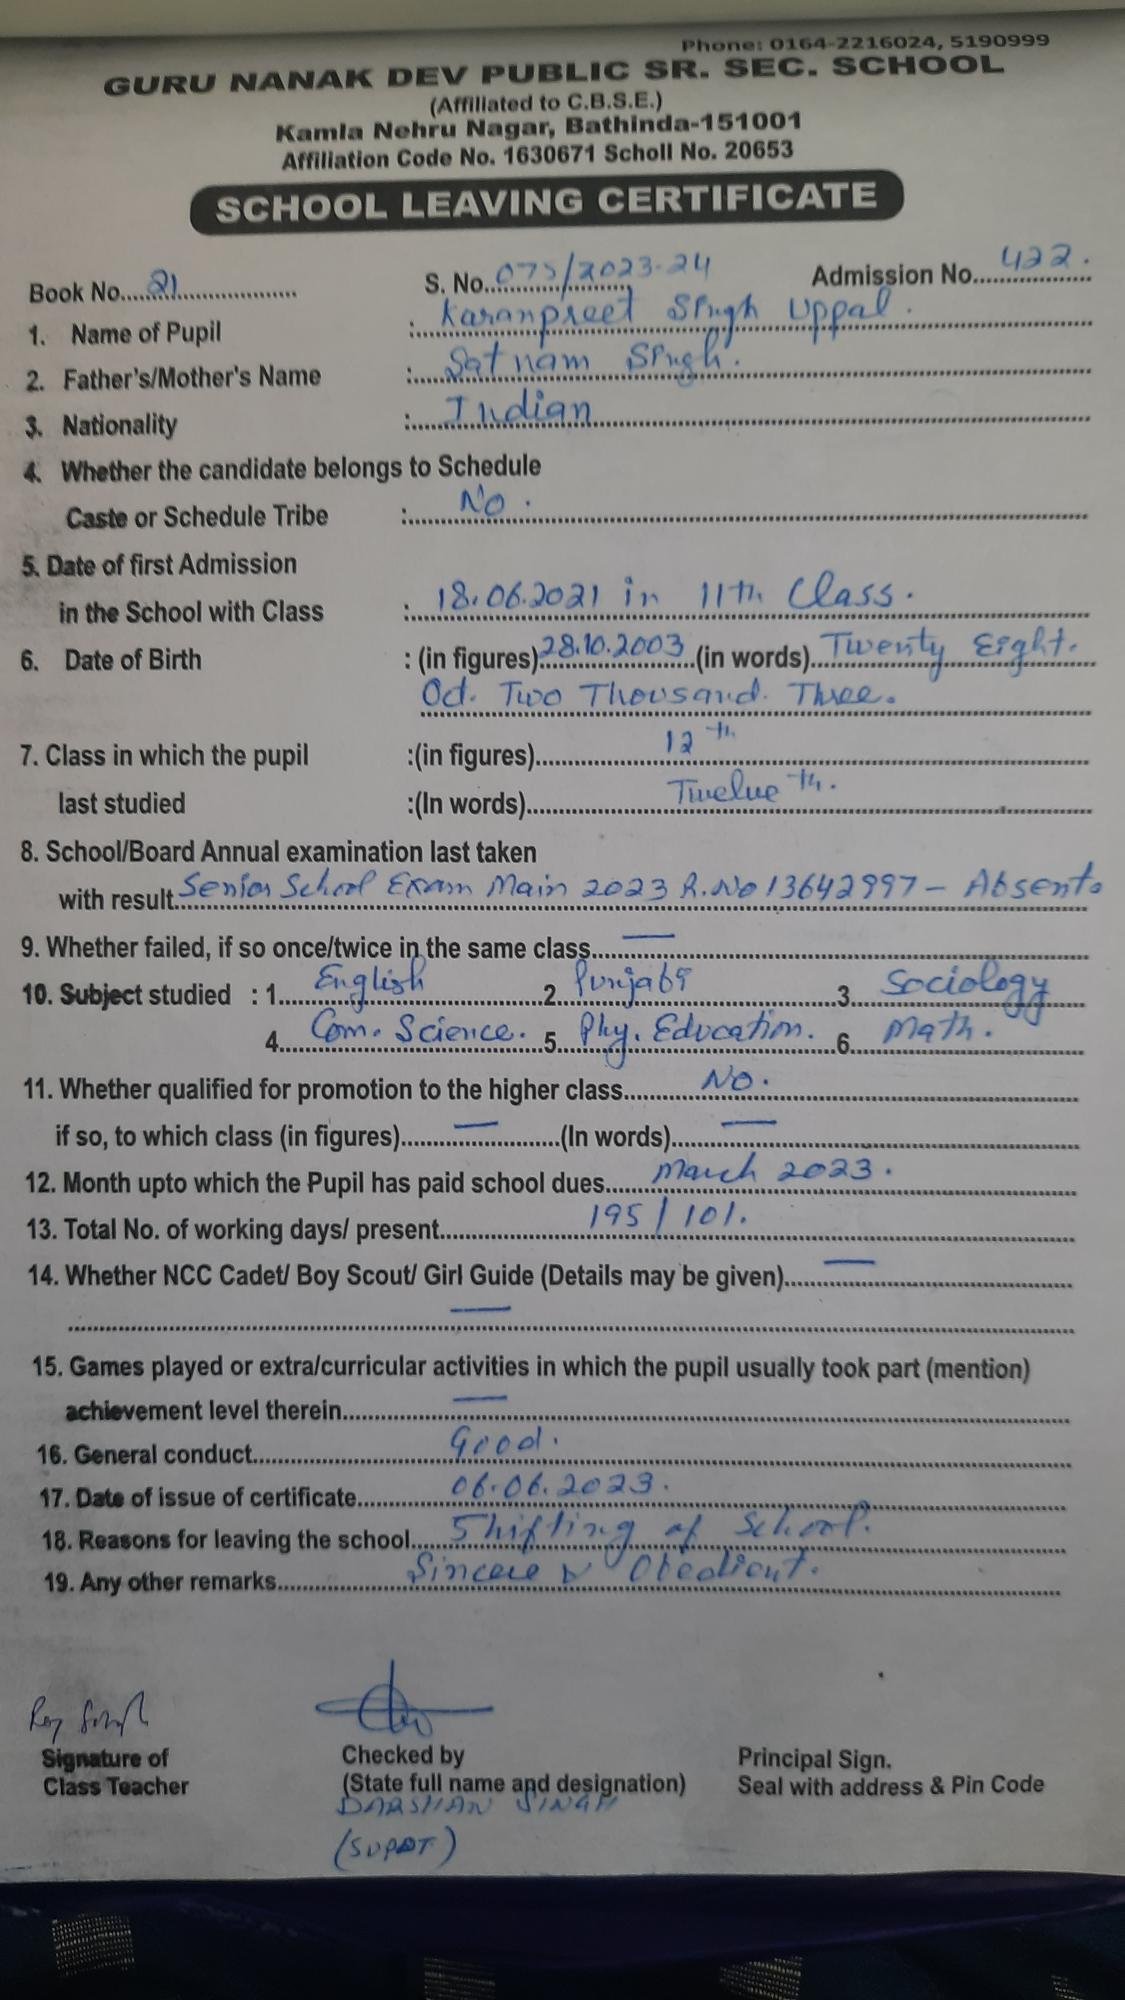 Phone: 0164-2216024, 5190999
GURU NANAK DEV PUBLIC SR. SEC. SCHOOL
(Affiliated to C.B.S.E.)
Kamla Nehru Nagar, Bathinda-151001
Affiliation Code No. 1630671 Scholl No. 20653
SCHOOL LEAVING CERTIFICATE
Book No. 21 S. No. 075/2023-24 Admission No. 422.
1. Name of Pupil : Karanpreet Singh Uppal.
2. Father's/Mother's Name : Satnam Singh.
3. Nationality : Indian
4. Whether the candidate belongs to Schedule
Caste or Schedule Tribe : No.
5. Date of first Admission
in the School with Class : 18.06.2021 in 11th Class.
6. Date of Birth : (in figures) 28.10.2003 (in words) Twenty Eight.
Oct. Two Thousand. Three.
7. Class in which the pupil :(in figures) 12th
last studied :(In words) Twelveth.
8. School/Board Annual examination last taken
with result Senior School Exam Main 2023 R.No 13642997 - Absent
9. Whether failed, if so once/twice in the same class —
10. Subject studied : 1. English 2. Punjabi 3. Sociology
4. Com. Science. 5. Phy. Education. 6. Math.
11. Whether qualified for promotion to the higher class No.
if so, to which class (in figures) — (In words) —
12. Month upto which the Pupil has paid school dues March 2023.
13. Total No. of working days/ present 195/101.
14. Whether NCC Cadet/ Boy Scout/ Girl Guide (Details may be given) —
—
15. Games played or extra/curricular activities in which the pupil usually took part (mention)
achievement level therein —
16. General conduct Good.
17. Date of issue of certificate 06.06.2023.
18. Reasons for leaving the school Shifting of School.
19. Any other remarks Sincere & Obedient.
Signature of Checked by Principal Sign.
Class Teacher (State full name and designation) Seal with address & Pin Code
DARSHAN SINGH
(SUPDT)